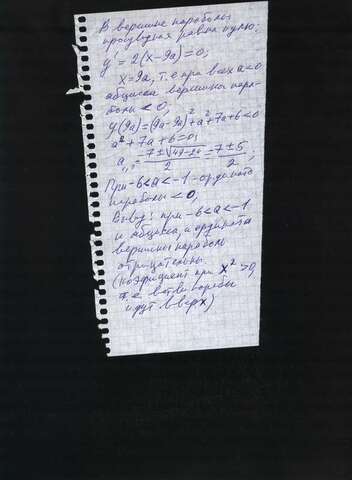 В вершине параболы
производная равна нулю,
y' = 2(x-9a)=0;
x=9a, т.е при всех a<0
абцисса вершины пара-
болы < 0;
y(9a)=(9a-9a)²+a²+7a+6<0
a²+7a+6=0;
a₁,₂ = -7±√49-24/2 = -7±5/2;
При -6<a<-1 - ордината
параболы < 0,
Вывод: при -6<a<-1
и абцисса, и ордината
вершины парабол
отрицательны.
(коэфициент при x²>0,
т.е. ветви параболы
идут вверх)